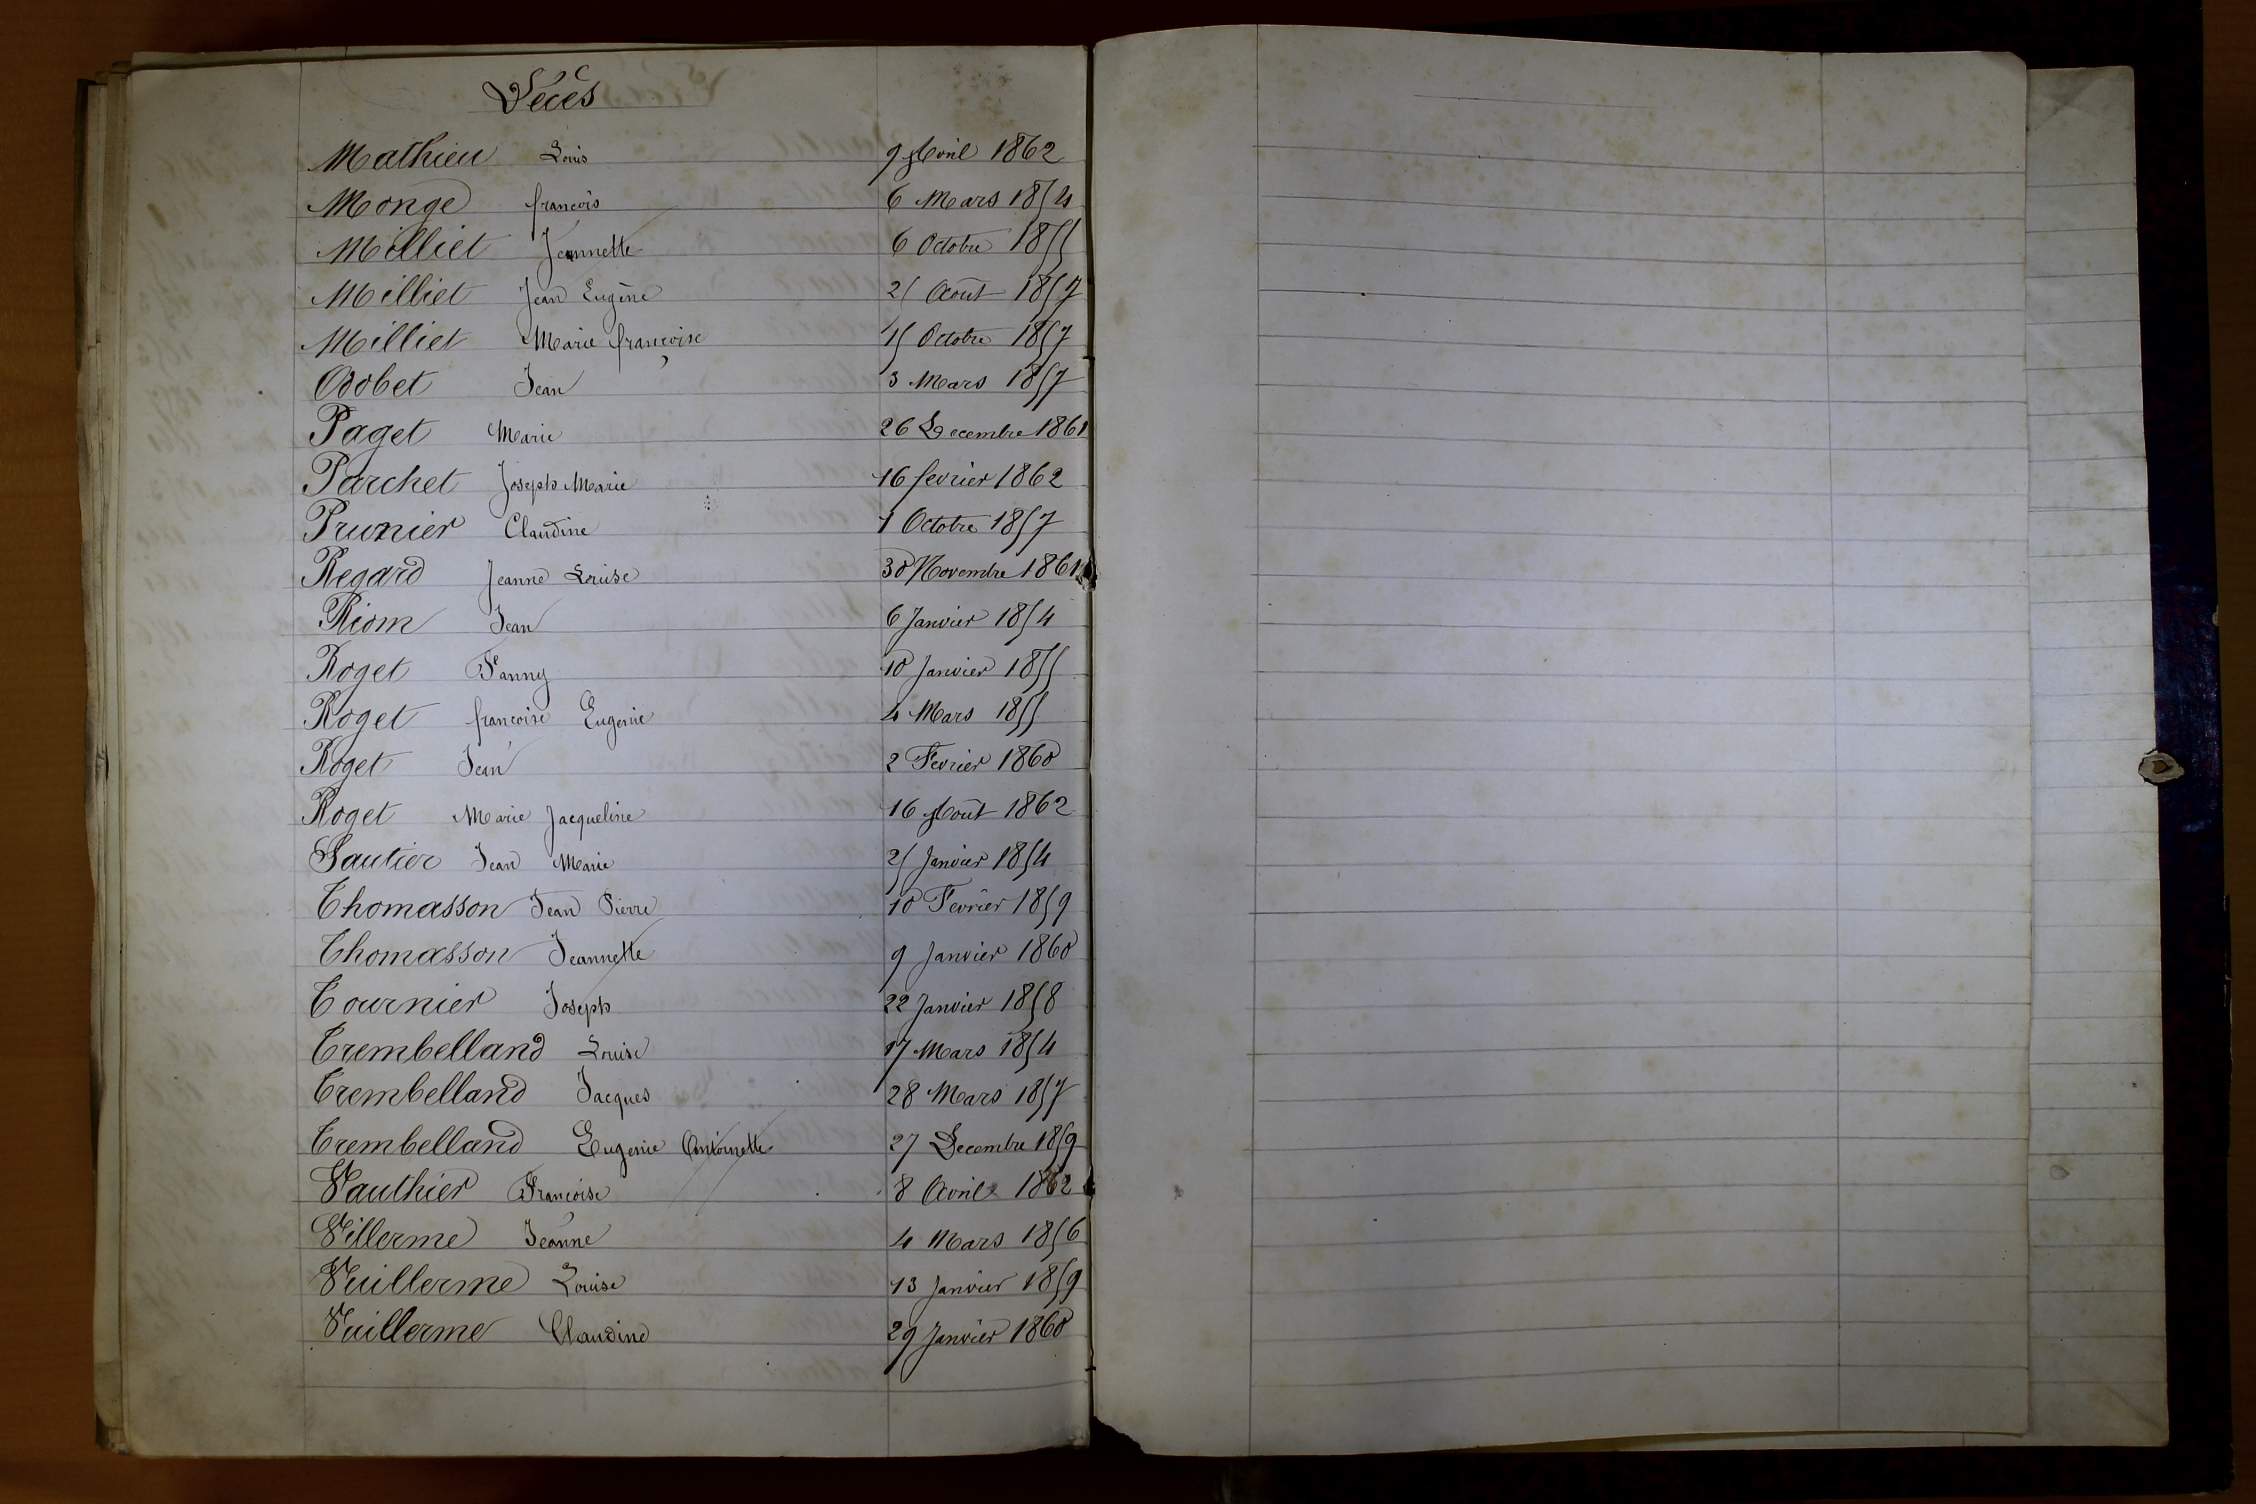 Décès
Mathieu Louis 9 Avril 1862
Monge françois 6 Mars 1854
Milliet Jeannette 6 Octobre 1855
Milliet Jean Eugène 25 Août 1857
Milliet Marie françoise 15 Octobre 1857
Odobet Jean 3 Mars 1857
Paget Marie 26 Decembre 1861
Parchet Joseph Marie 16 fevrier 1862
Prunier Claudine 1 Octobre 1857
Regard Jeanne Louise 30 Novembre 1861
Riom Jean 6 Janvier 1854
Roget Fanny 10 Janvier 1855
Roget françoise Eugenie 4 Mars 1855
Roget Jean 2 Fevrier 1860
Roget Marie Jacqueline 16 Août 1862
Sautier Jean Marie 25 Janvier 1854
Thomasson Jean Pierre 10 Fevrier 1859
Thomasson Jeannette 9 Janvier 1860
Tournier Joseph 22 Janvier 1858
Trembelland Louise 17 Mars 1854
Trembelland Jacques 28 Mars 1857
Trembelland Eugenie Antoinette 27 Decembre 1859
Vauthier Françoise 8 Avril 1862
Villerme Jeanne 4 Mars 1856
Vuillerme Louise 13 Janvier 1859
Vuillerme Claudine 29 Janvier 1860